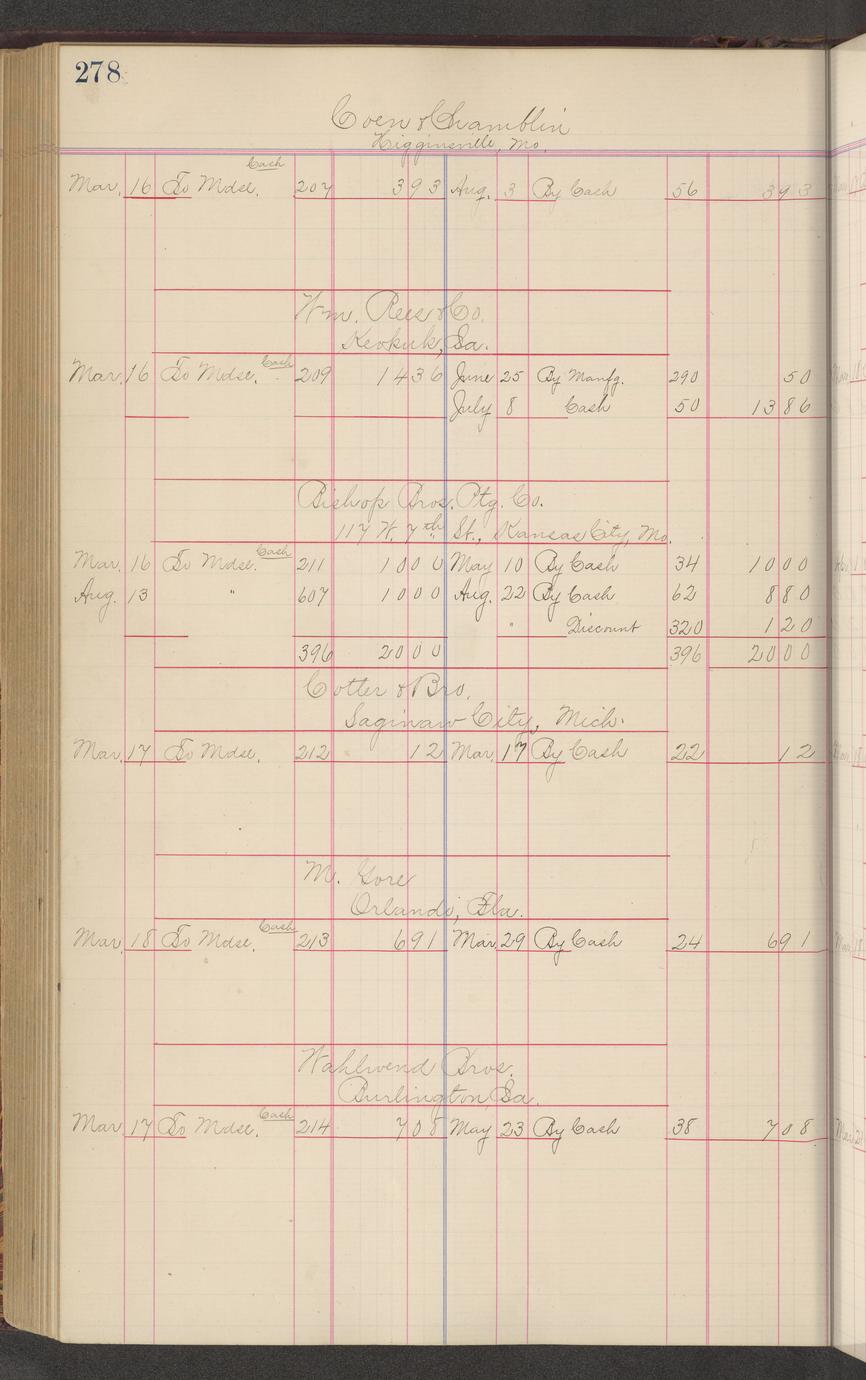 278
Coen & Chamblin
Higginsville, Mo.
Cash
Mar. 16 To Mdse. 207 393 Aug. 3 By Cash 56 393
Wm. Rees & Co.
Keokuk, Ia.
Cash
Mar. 16 To Mdse. 209 1436 June 25 By Manfg. 290 50
July 8 Cash 50 1386
Bishop Bros. Ptg. Co.
117 W. 7th St., Kansas City, Mo.
Cash
Mar. 16 To Mdse. 211 1000 May 10 By Cash 34 1000
Aug. 13 " 607 1000 Aug. 22 By Cash 62 880
" Discount 320 120
396 2000 396 2000
Cotter & Bro.
Saginaw City, Mich.
Mar. 17 To Mdse. 212 12 Mar. 17 By Cash 22 12
M. Gore
Orlando, Fla.
Cash
Mar. 18 To Mdse. 213 691 Mar. 29 By Cash 24 691
Wahlwend Bros.
Burlington, Ia.
Cash
Mar. 17 To Mdse. 214 708 May 23 By Cash 38 708